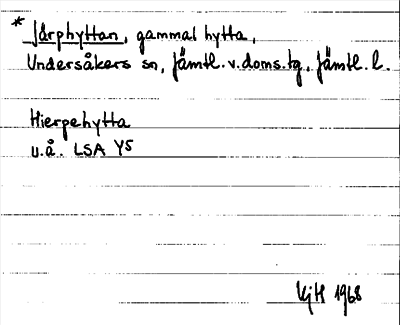 * Järphyttan, gammal hytta,
Undersåkers sn, Jämtl. v. doms. tg. Jämtl. l.
Hierpehytta
u.å. LSA Y5
1968